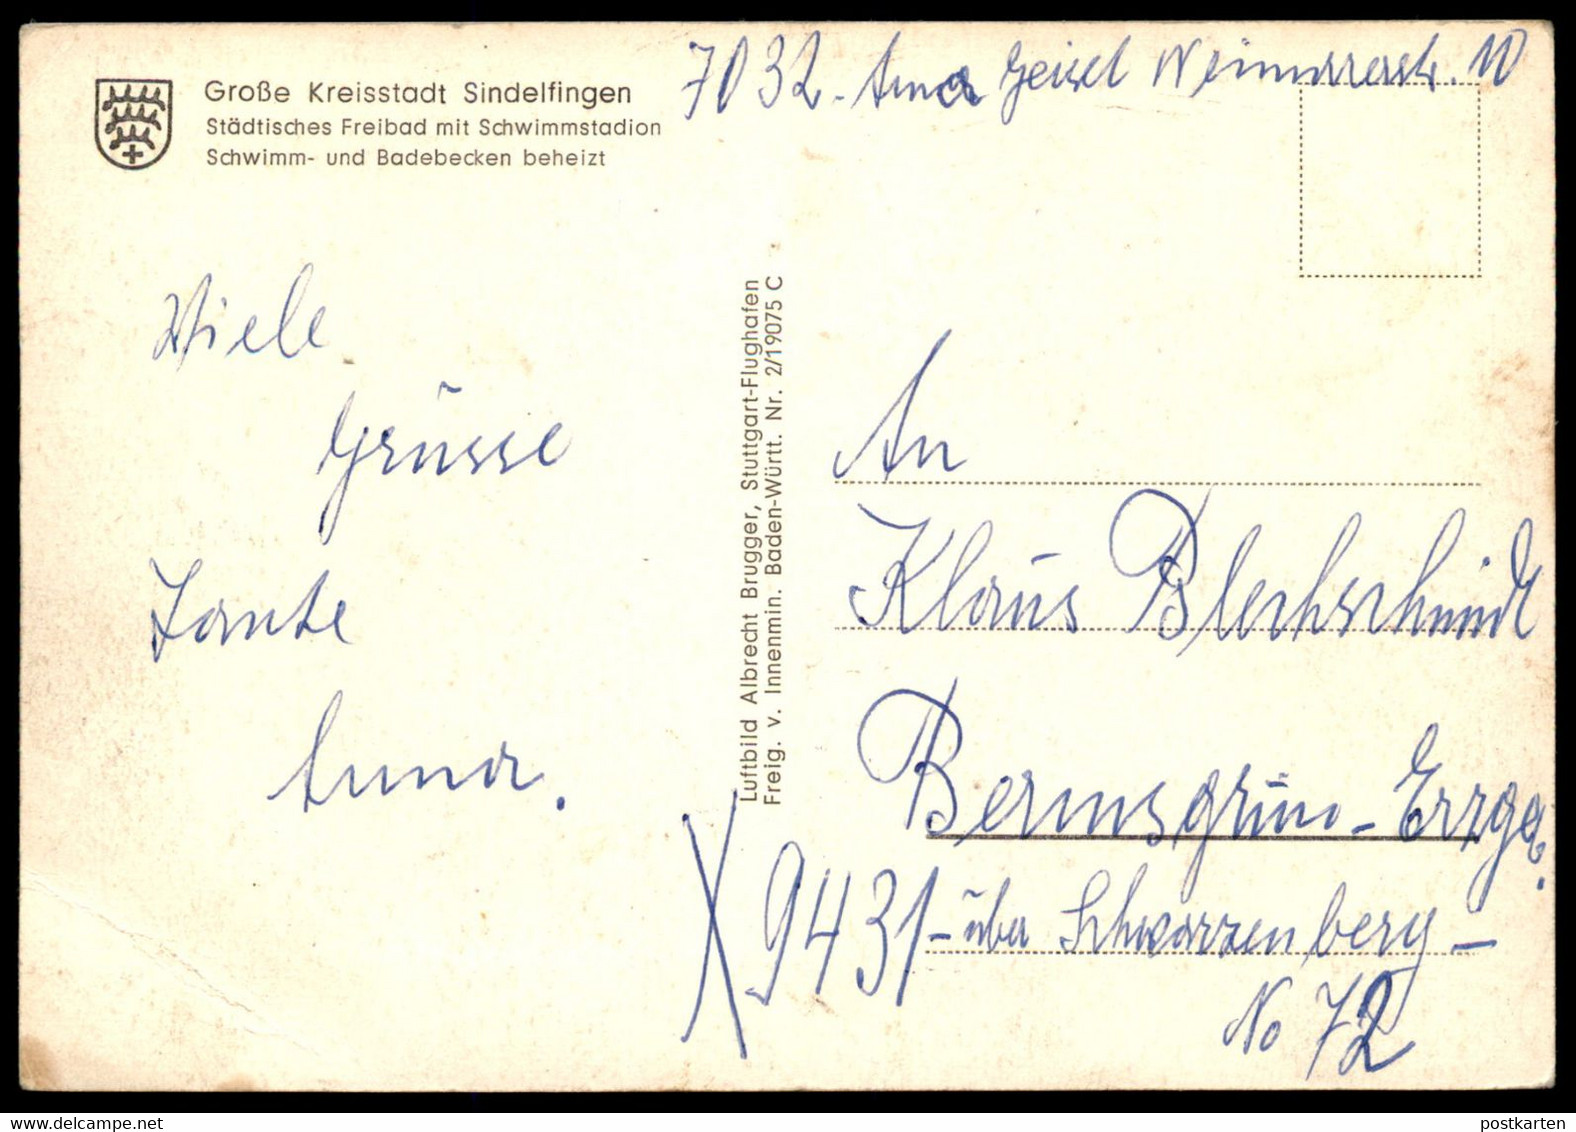 Große Kreisstadt Sindelfingen
Städtisches Freibad mit Schwimmstadion
Schwimm- und Badebecken beheizt
7032 - Anna Geisel 10
Viele
Grüsse
Tante
Anna.
Luftbild Albrecht Brugger, Stuttgart-Flughafen
Freig. v. Innenmin. Baden-Württ. Nr. 2/19075 C
An
Klaus Blechschmidt
Bermsgrün - Erzgeb.
X 9431 - über Schwarzenberg -
No 72
postkarten